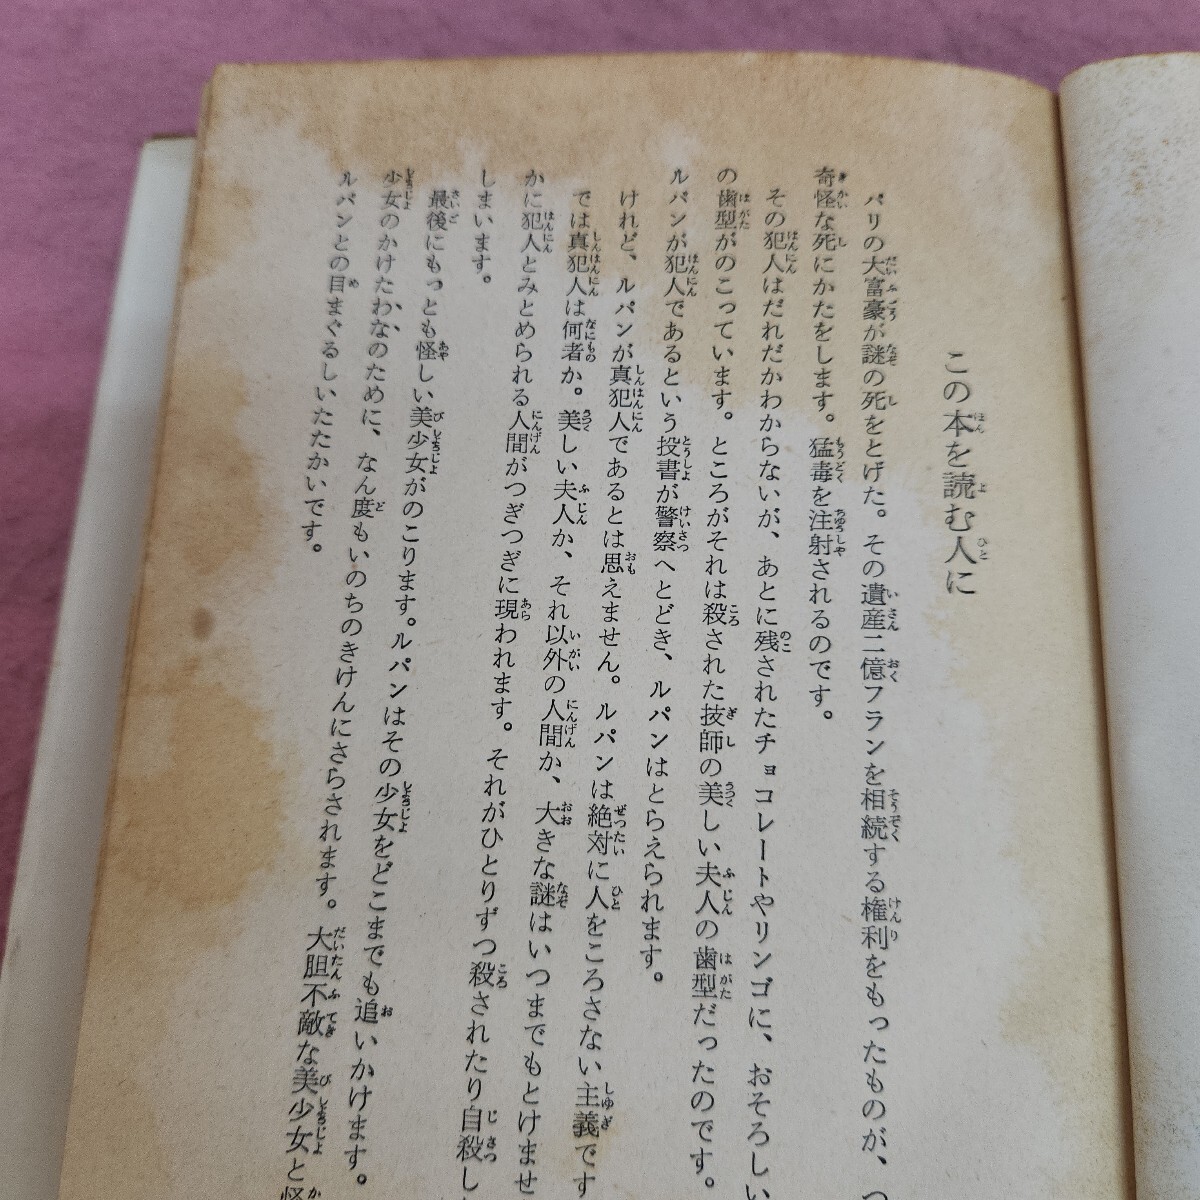 この本を読む人に
パリの大富豪が謎の死をとげた。その遺産二億フランを相続する権利をもったものが、つ
奇怪な死にかたをします。猛毒を注射されるのです。
その犯人はだれだかわからないが、あとに残されたチョコレートやリンゴに、おそろしい
の歯型がのこっています。ところがそれは殺された技師の美しい夫人の歯型だったのです。
ルパンが犯人であるという投書が警察へとどき、ルパンはとらえられます。
けれど、ルパンが真犯人であるとは思えません。ルパンは絶対に人をころさない主義です
では真犯人は何者か。美しい夫人か、それ以外の人間か、大きな謎はいつまでもとけませ
かに犯人とみとめられる人間がつぎつぎに現われます。それがひとりずつ殺されたり自殺し
しまいます。
最後にもっとも怪しい美少女がのこります。ルパンはその少女をどこまでも追いかけます。
少女のかけたわなのために、なん度もいのちのきけんにさらされます。大胆不敵な美少女と怪
ルパンとの目まぐるしいたたかいです。